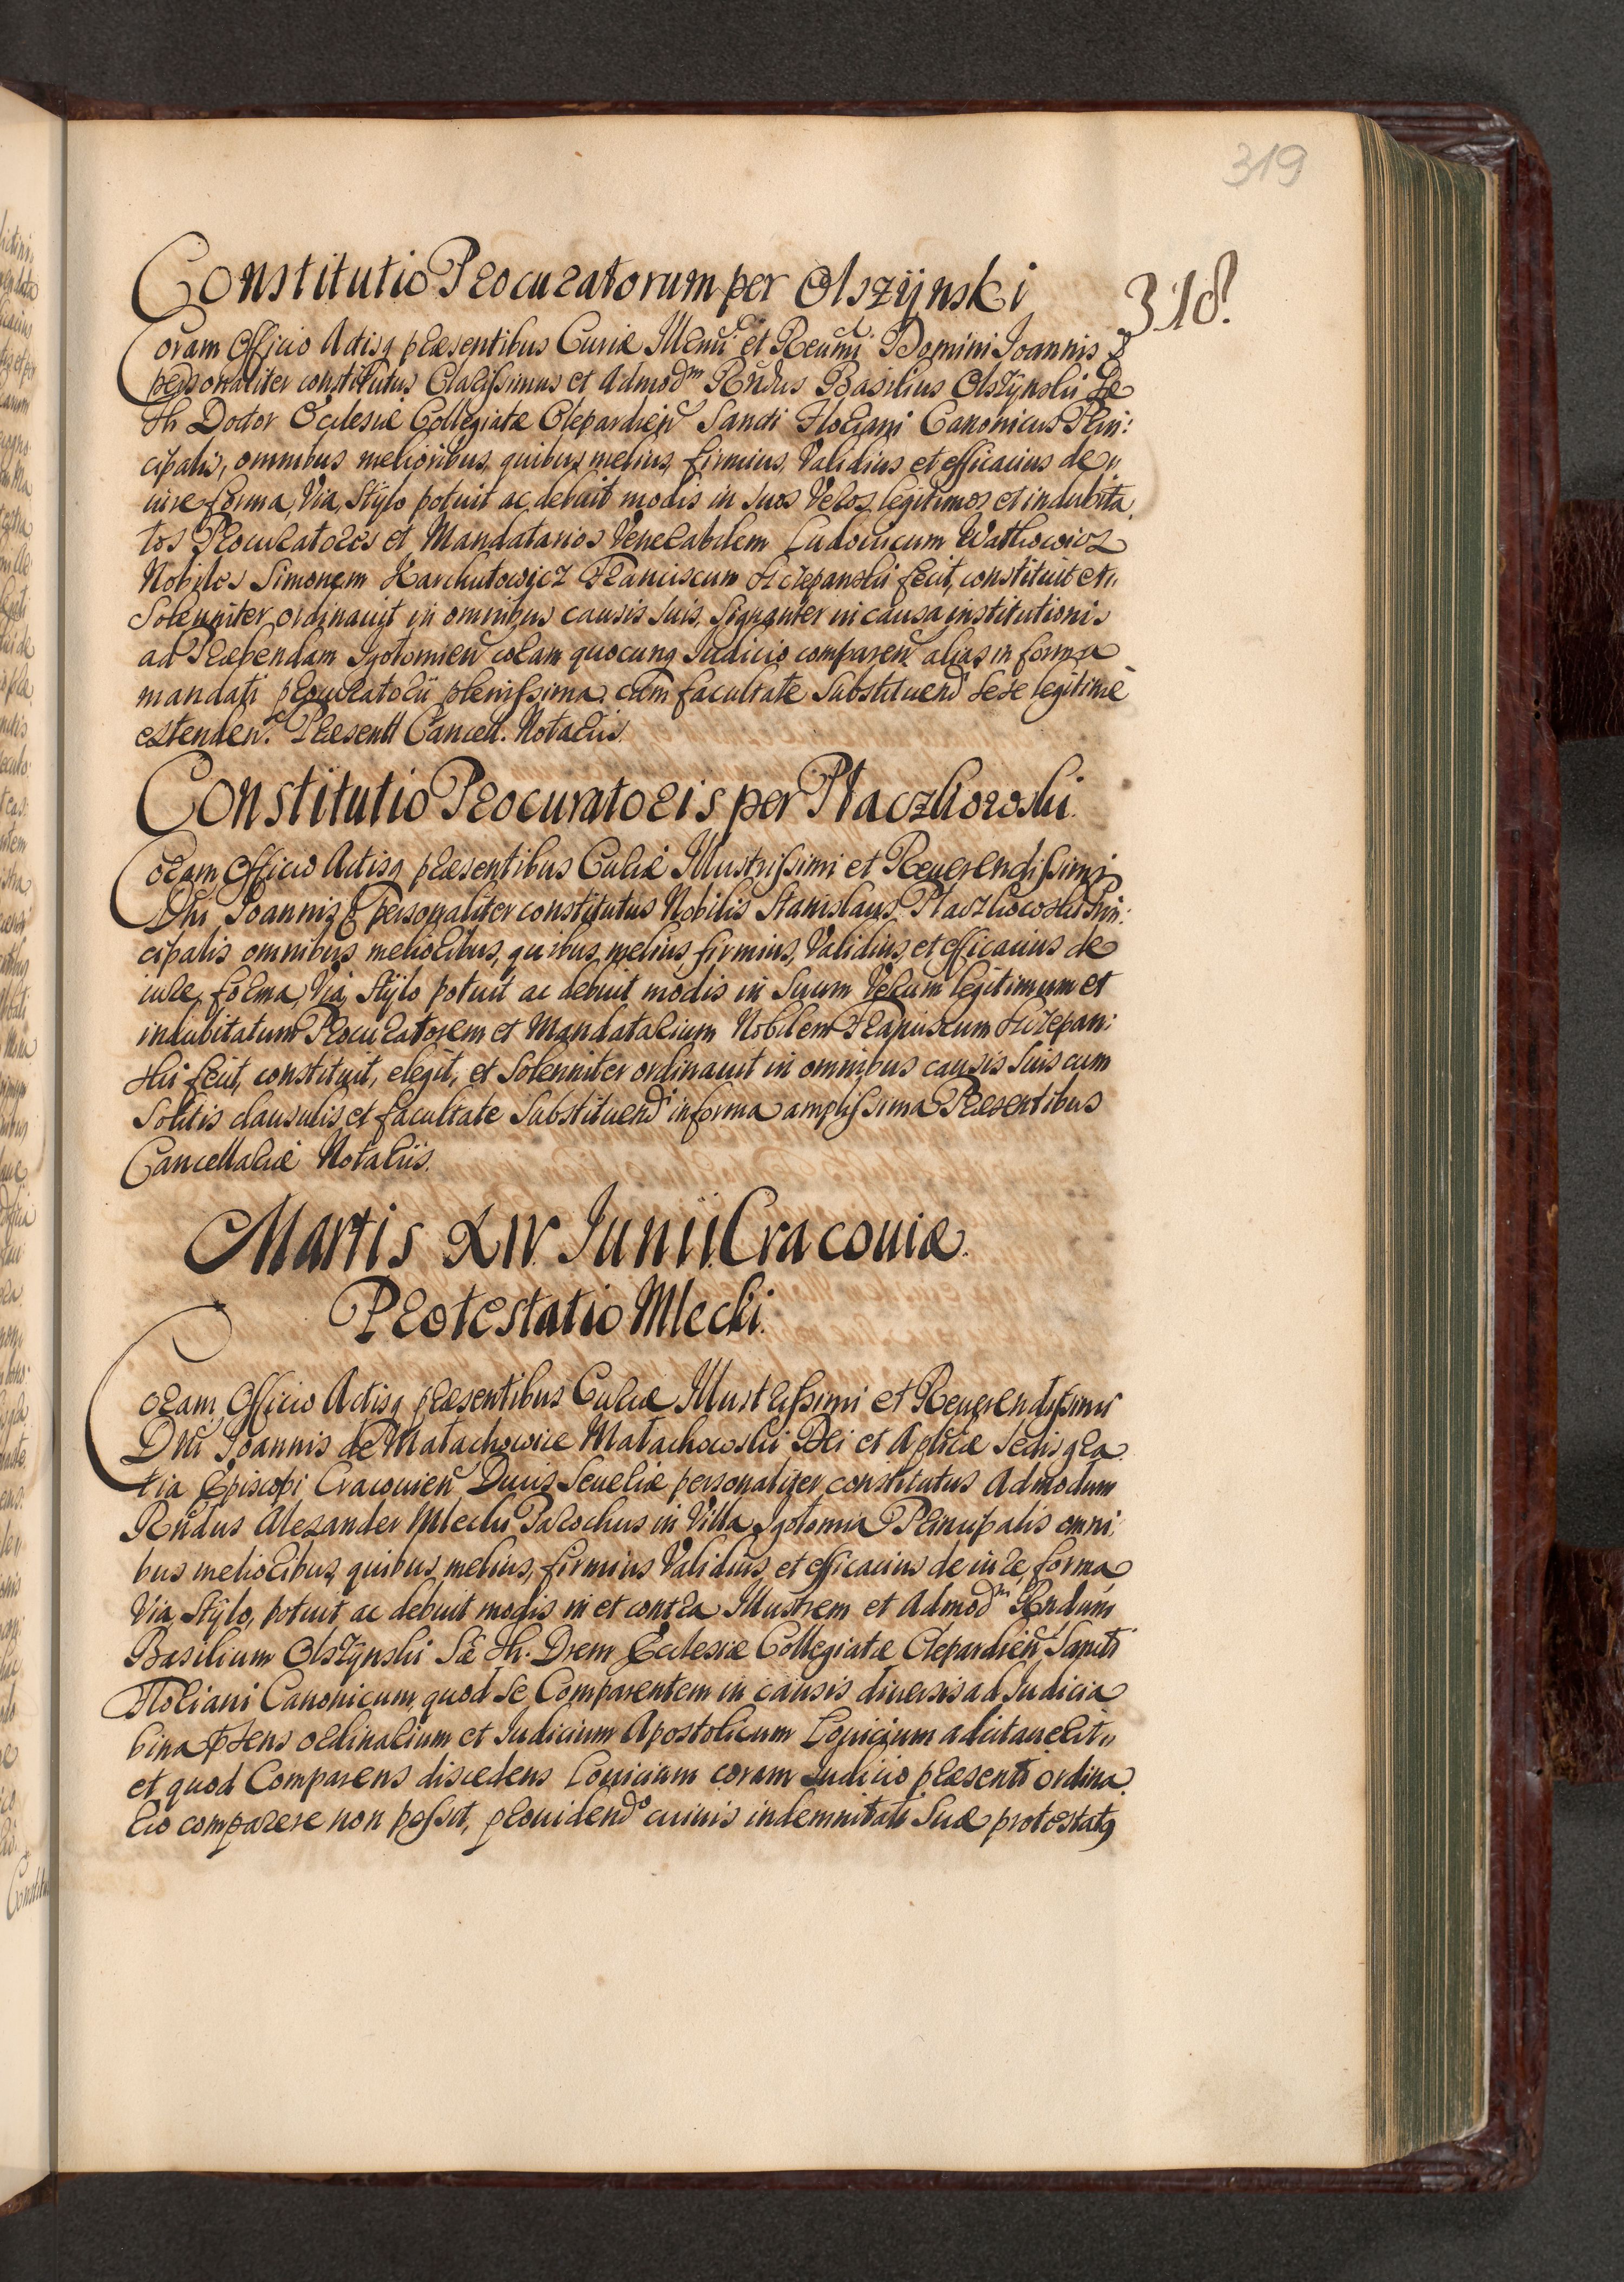 319
318.
Constitutio Procuratorum per Olszÿnski
Coram Officio Actisq præsentibus Curiæ Illmi et Reumi Domini Ioannis
personaliter constitutus Clarissimus et Admodm Rndus Basilius Olszÿnski Sæ
Th Doctor Ecclesiæ Collegiatæ Clepardien Sancti Floriani Canonicus Prin:
cipalis, omnibus melioribus, quibus melius, firmius, Validius et efficacius de
iure forma, Via, Stÿlo potuit ac debuit modis in suos Veros, legitimos et indubita
tos Procuratores et Mandatarios Venerabilem Ludouicum Wathowicz
Nobiles Simonem Karchutowicz Franciscum Sczepanski fecit, constituit et
Solenniter ordinauit in omnibus causis suis, signanter in causa institutionis
ad Præbendam Igotomien coram quocunq Iudicio comparen alias in forma
mandati procuratorii plenissima, cum facultate substituend sese legitime
extenden. Præsentt Cancell. Notariis.
Constitutio Procuratoris per Płaczkowski.
Coram Officio Actisq præsentibus Curiæ Illustrissimi et Reuerendissimi
Dni Ioannis personaliter constitutus Nobilis Stanislaus Płaczkowski Prin:
cipalis omnibus melioribus, quibus melius, firmius, Validius, et efficacius de
iure, forma, Via, Stÿlo potuit ac debuit modis in suum Verum legitimum et
indubitatum Procuratorem et Mandatarium Nobilem Franciscum Sczepan:
ski fecit, constituit, elegit, et Solenniter ordinauit in omnibus causis suis cum
Solitis clausulis et facultate Substituendi in forma amplissima Præsentibus
Cancellariæ Notariis.
Martis XIV. Iunii. Cracouiæ.
Protestatio Mlecki.
Coram Officio Actisq præsentibus Curiæ Illustrissimi et Reuerendissimi
Dni Ioannis de Małachowice Małachowski Dei et Aplicæ Sedis gra
tia Episcopi Cracouien Ducis Seueriæ personaliter constitutus Admodum
Rndus Alexander Mlecki Parochus in Villa Igotomia Principalis omni
bus melioribus, quibus melius, firmius Validius, et efficacius de iure, forma,
Via, Stÿlo, potuit ac debuit modis in et contra Illustrem et Admodm Rndum
Basilium Olszÿnski Sæ Th. Drem Ecclesiæ Collegiatæ Clepardien Sancti
Floriani Canonicum, quod se Comparentem in causis diuersis ad Iudicia
bina præsens ordinarium et Iudicium Apostolicum Louicium adcitauerit
et quod Comparens discedens Louicium coram Iudicio præsenti ordina
rio comparere non posset, prouidendo cuiuis indemnitati suæ protestatq